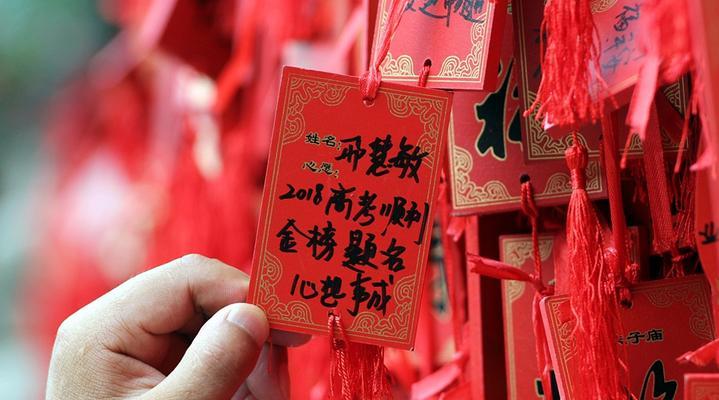 姓名:邢慧敏
心愿:
2018高考顺利
金榜题名
心想事成
子庙